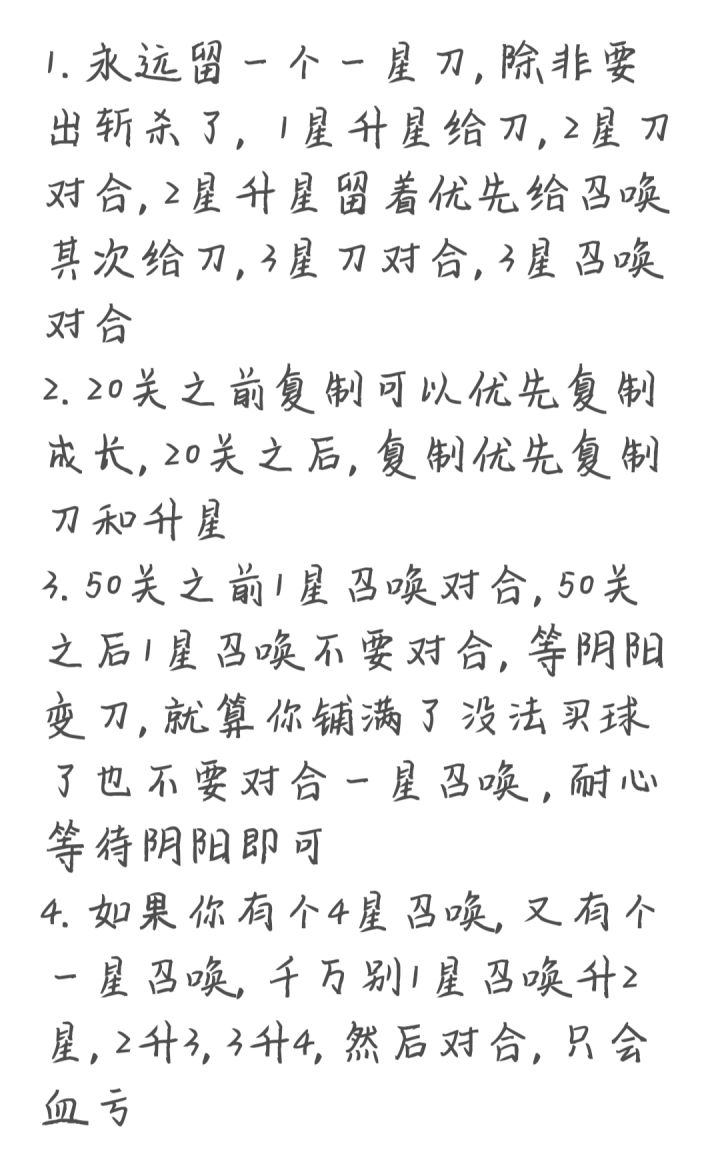 1. 永远留一个一星刀, 除非要
出斩杀了, 1星升星给刀, 2星刀
对合, 2星升星留着优先给召唤
其次给刀, 3星刀对合, 3星召唤
对合
2. 20关之前复制可以优先复制
成长, 20关之后, 复制优先复制
刀和升星
3. 50关之前1星召唤对合, 50关
之后1星召唤不要对合, 等阴阳
变刀, 就算你铺满了没法买球
了也不要对合一星召唤, 耐心
等待阴阳即可
4. 如果你有个4星召唤, 又有个
一星召唤, 千万别1星召唤升2
星, 2升3, 3升4, 然后对合, 只会
血亏